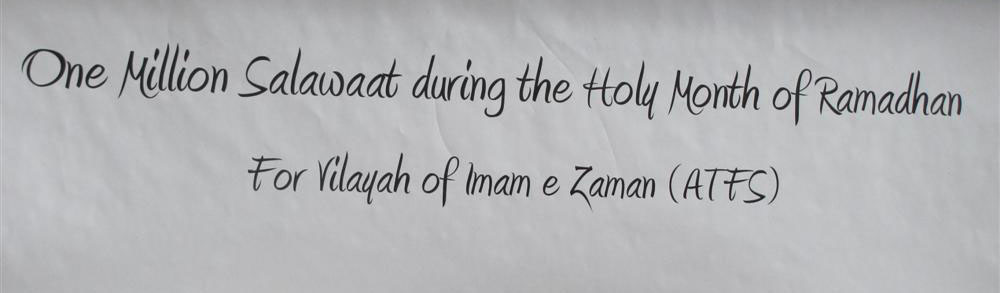 One Million Salawaat during the Holy Month of Ramadhan
For Vilayah of Imam e Zaman (ATFS)